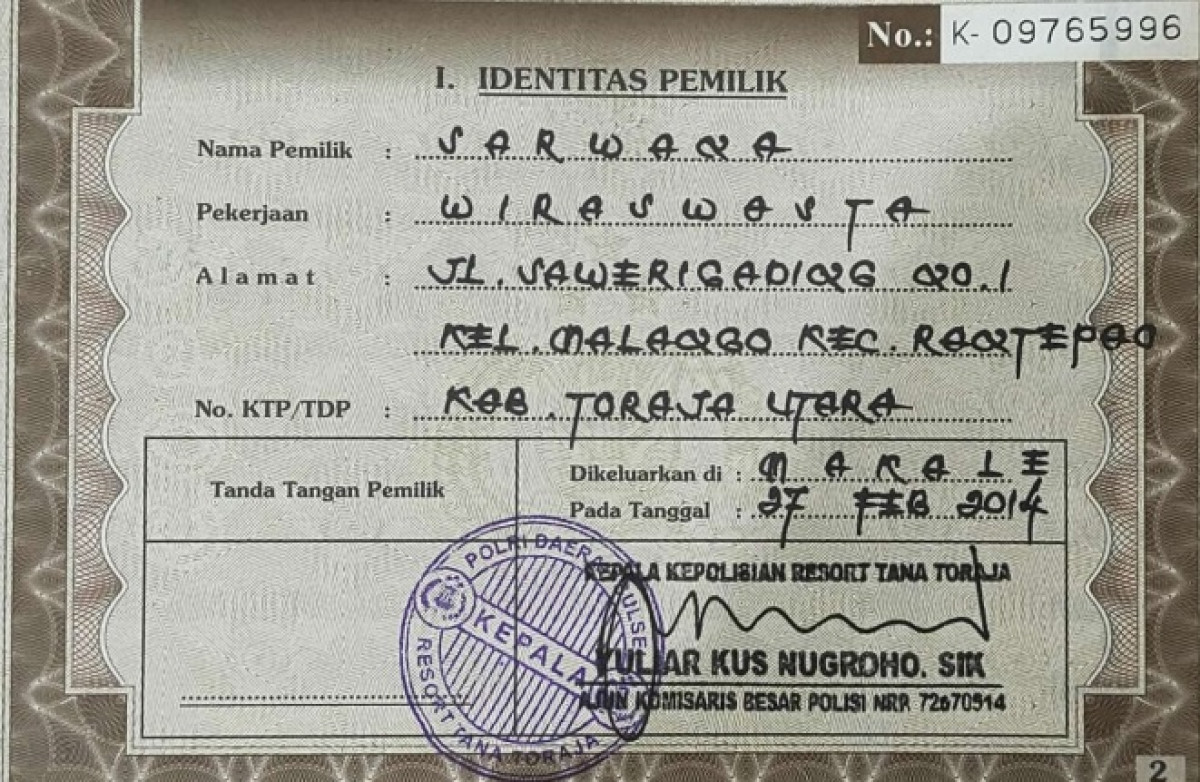 No.: K- 09765996
I. IDENTITAS PEMILIK
Nama Pemilik : SARWANA
Pekerjaan : WIRASWASTA
Alamat : JL. SAWERIGADING NO. 1
KEL. MALANGO KEC. RANTEPAO
No. KTP/TDP : KAB. TORAJA UTARA
Tanda Tangan Pemilik
Dikeluarkan di : MAKALE
Pada Tanggal : 27 FEB 2014
POLRI DAERAH SULSEL
KEPALA
RESORT TANA TORAJA
KEPALA KEPOLISIAN RESORT TANA TORAJA
YULIAR KUS NUGROHO. SIK
AJUN KOMISARIS BESAR POLISI NRP. 72670514
2